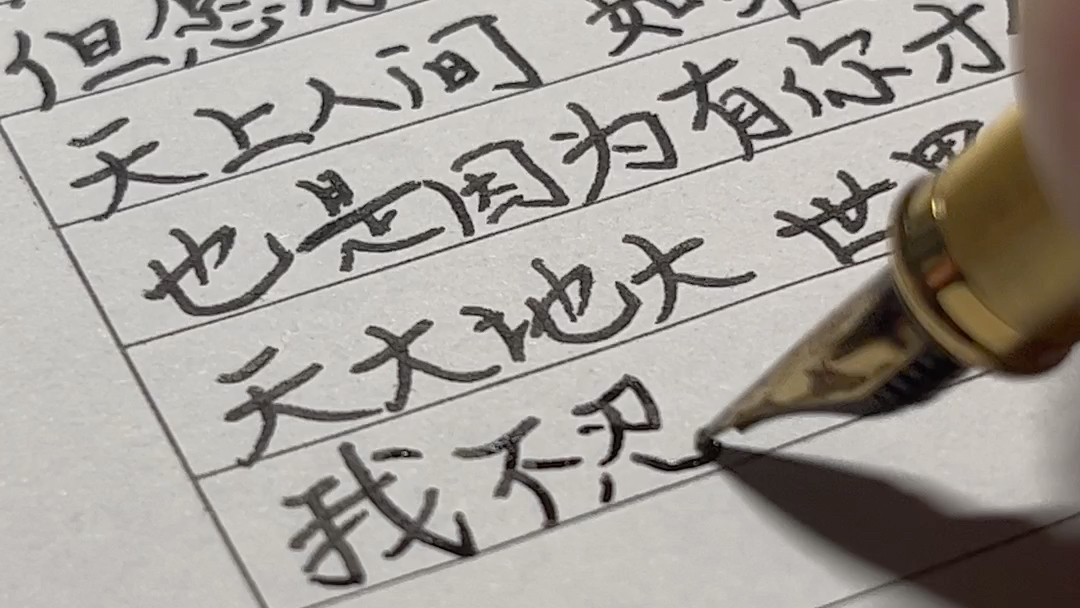 但
天上人间 如
也是因为有你才
天大地大 世界
我不忍